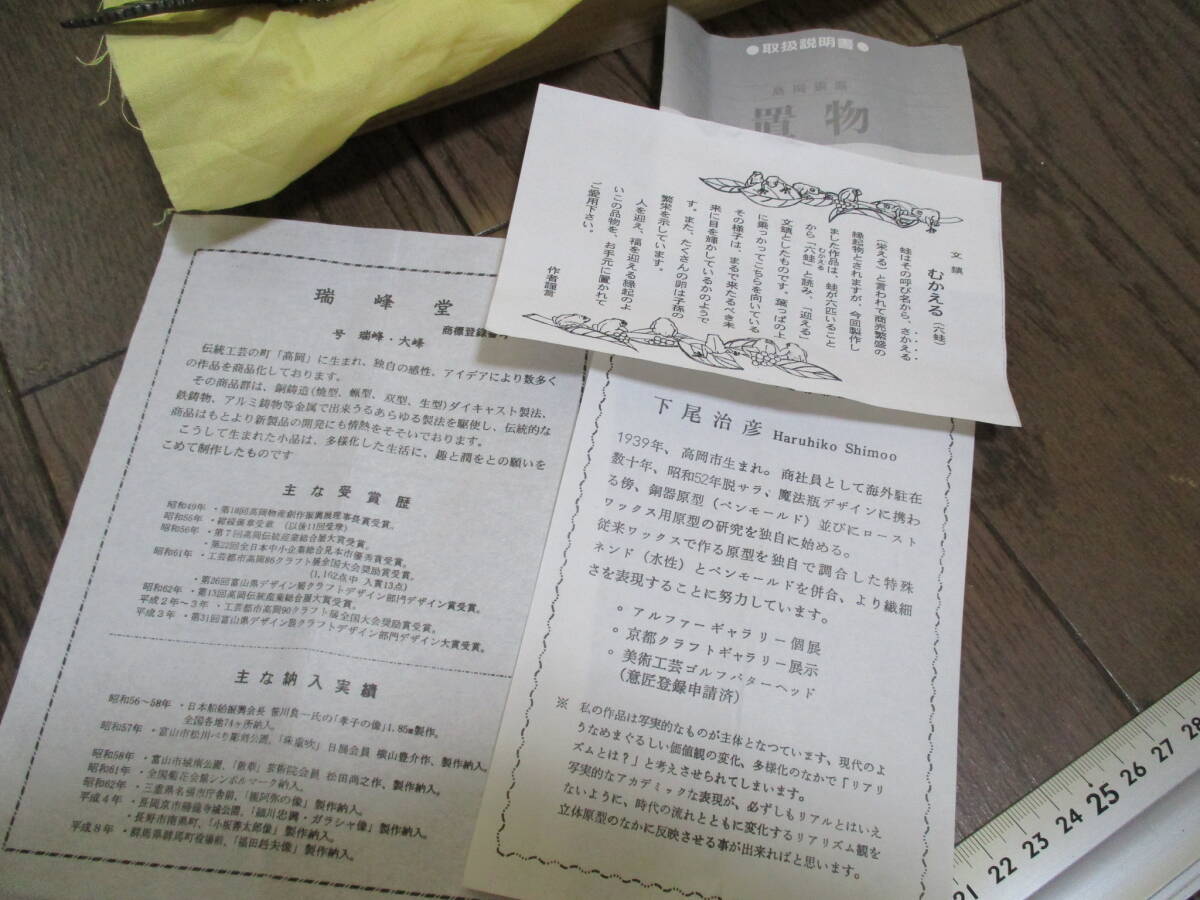 ●取扱説明書●
高岡銅器
置物
文鎮
むかえる(六蛙)
蛙はその呼び名から、さかえる
(栄える)と言われて商売繁盛の
縁起物とされますが、今回製作し
ました作品は、蛙が六匹いること
から「六蛙」と読み、「迎える」
むかえる
文鎮としたものです。葉っぱの上
に乗っかってこちらを向いている
その様子は、まるで来たるべき未
来に目を輝かしているかのようで
す。また、たくさんの卵は子孫の
繁栄を示しています。
人を迎え、福を迎える縁起のよ
いこの品物を、お手元に置かれて
ご愛用下さい。
作者謹言
瑞峰堂
商標登録
号 瑞峰・大峰
伝統工芸の町「高岡」に生まれ、独自の感性、アイデアにより数多く
の作品を商品化しております。
その商品群は、銅鋳造(焼型、蝋型、双型、生型)ダイキャスト製法、
鉄鋳物、アルミ鋳物等金属で出来うるあらゆる製法を駆使し、伝統的な
商品はもとより新製品の開発にも情熱をそそいでおります。
こうして生まれた小品は、多様化した生活に、趣と潤をとの願いを
こめて制作したものです
主な受賞歴
昭和49年・第18回高岡物産創作振興展理事長賞受賞。
昭和55年・紺綬褒章受章 (以後11回受章)
昭和56年・第7回高岡伝統産業総合展大賞受賞。
・第22回全日本中小企業総合見本市優秀賞受賞。
昭和61年・工芸都市高岡86クラフト展全国大会奨励賞受賞。
(1,162点中 入賞13点)
・第26回富山県デザイン展クラフトデザイン部門デザイン賞受賞。
昭和62年・第13回高岡伝統産業総合展大賞受賞。
平成2年~3年・工芸都市高岡90クラフト展全国大会奨励賞受賞。
平成3年・第31回富山県デザイン展クラフトデザイン部門デザイン大賞受賞。
主な納入実績
昭和56~58年・日本船舶振興会長 笹川良一氏の「孝子の像」1.85m製作。
全国各地74ヶ所納入。
昭和57年・富山市松川べり彫刻公園。「珠重吹」日展会員 横山豊介作、製作納入。
昭和58年・富山市城南公園、「散華」芸術院会員 松田尚之作、製作納入。
昭和61年・全国菊花会館シンボルマーク納入。
昭和62年・三重県名張市庁舎前、「観阿弥の像」製作納入。
平成4年・長岡京市勝龍寺城公園。「細川忠興・ガラシャ像」製作納入。
・長野市南県町、「小坂善太郎像」製作納入。
平成8年・群馬県群馬町役場前、「福田赳夫像」製作納入。
下尾治彦 Haruhiko Shimoo
1939年、高岡市生まれ。商社員として海外駐在
数十年、昭和52年脱サラ、魔法瓶デザインに携わ
る傍、銅器原型(ペンモールド)並びにロースト
ワックス用原型の研究を独自に始める。
従来ワックスで作る原型を独自で調合した特殊
ネンド(水性)とペンモールドを併合、より繊細
さを表現することに努力しています。
。アルファーギャラリー個展
。京都クラフトギャラリー展示
。美術工芸ゴルフパターヘッド
(意匠登録申請済)
※ 私の作品は写実的なものが主体となっています、現代のよ
うなめまぐるしい価値観の変化、多様化のなかで「リアリ
ズムとは?」と考えさせられてしまいます。
写実的なアカデミックな表現が、必ずしもリアルとはいえ
ないように、時代の流れとともに変化するリアリズム観を
立体原型のなかに反映させる事が出来ればと思います。
21 22 23 24 25 26 27 28